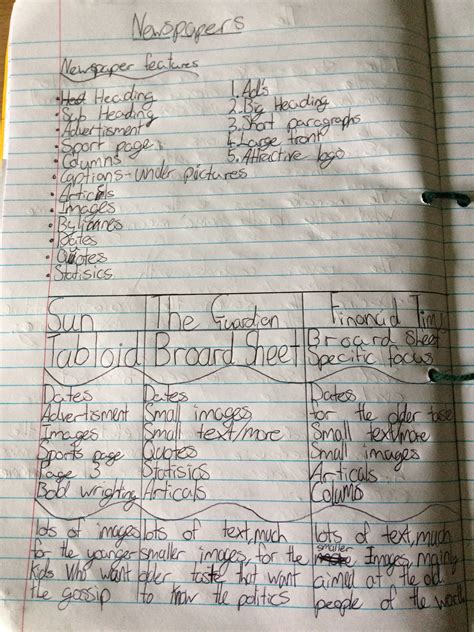 Newspapers
Newspaper features
• Heading
• Sub Heading
• Advertisment
• Sport page
• Columns
• Captions - under pictures
• Articals
• Images
• Bylines
• Dates
• Quotes
• Statisics
1. Ad's
2. Big Heading
3. Short paragraphs
4. Large front
5. Attractive logo
Sun
Tabloid
Dates
Advertisment
Images
Sports page
Page 3
Bold wrighting
lots of images
for the younger
kids who want
the gossip
The Guardian
Broard Sheet
Dates
Small images
Small text/more
Quotes
Statisics
Articals
lots of text, much
smaller images, for the
older taste that want
to know the politics
Financial Tim
Broard Sheet
Specific focus
Dates
for the older taste
Small text/more
Small images
Articals
Colums
lots of text, much
smaller Images, mainly
aimed at the old
people of the world